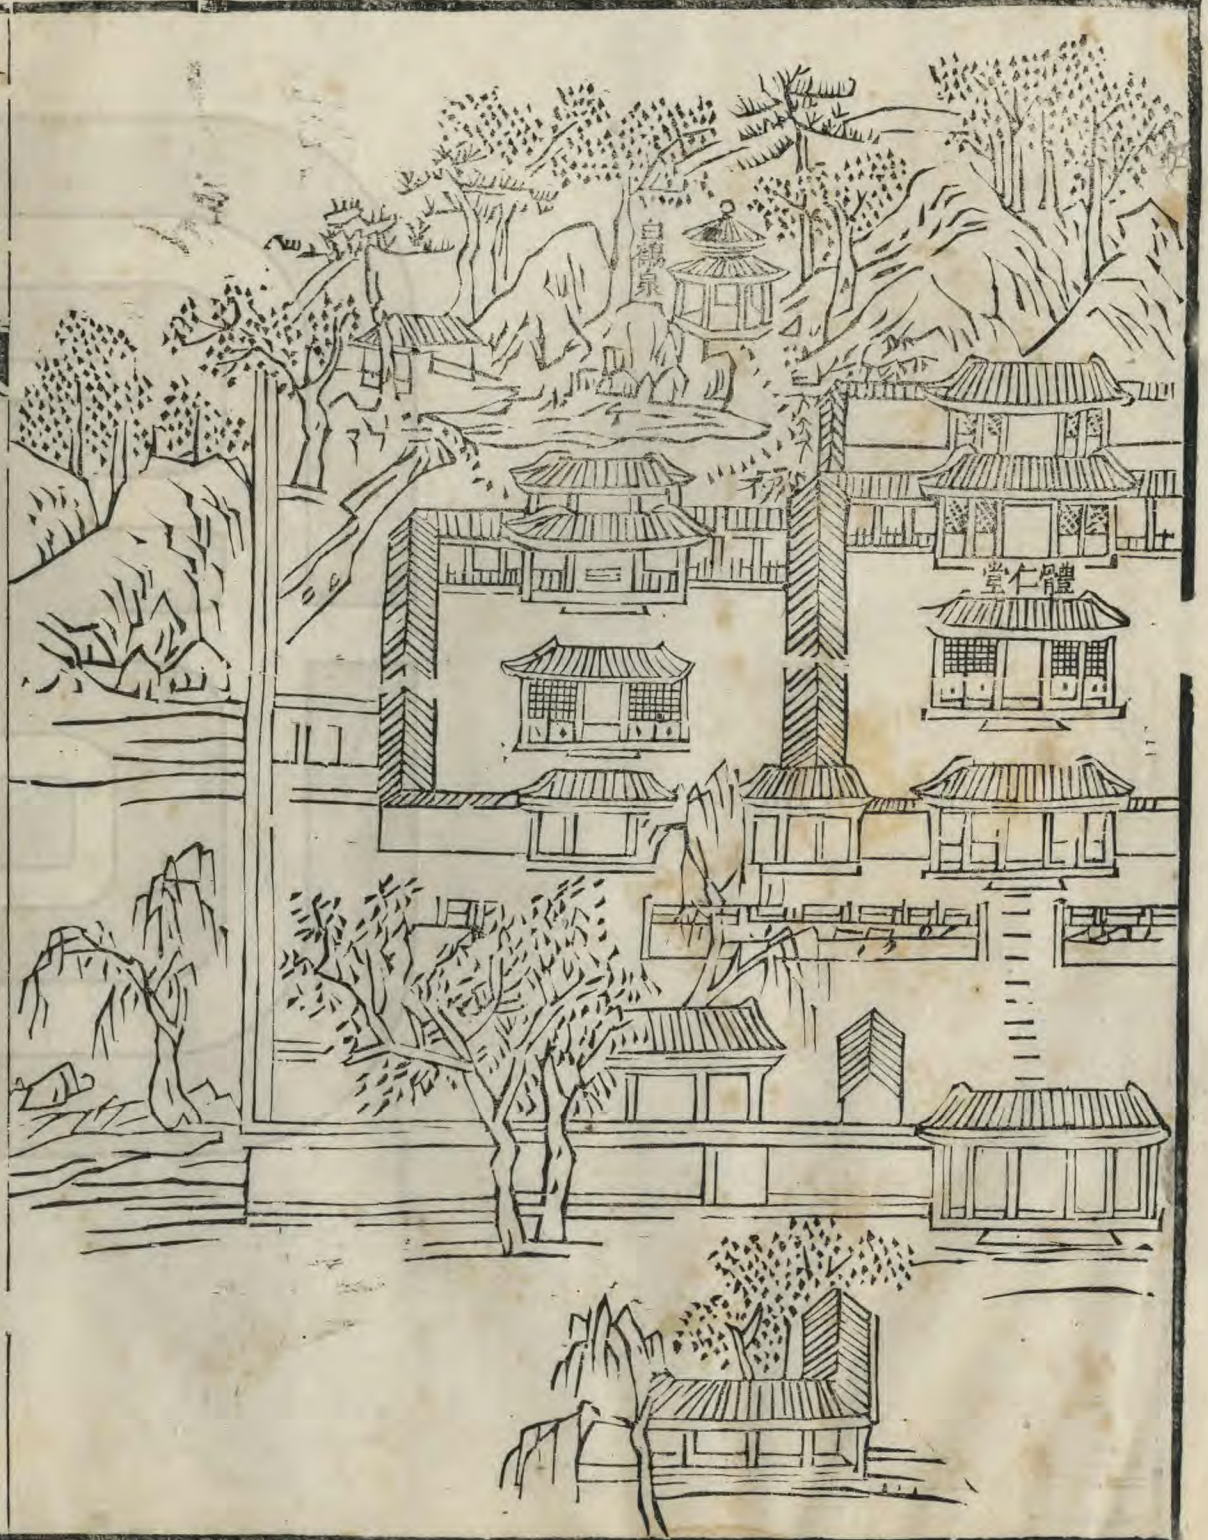 白鶴泉
體仁堂